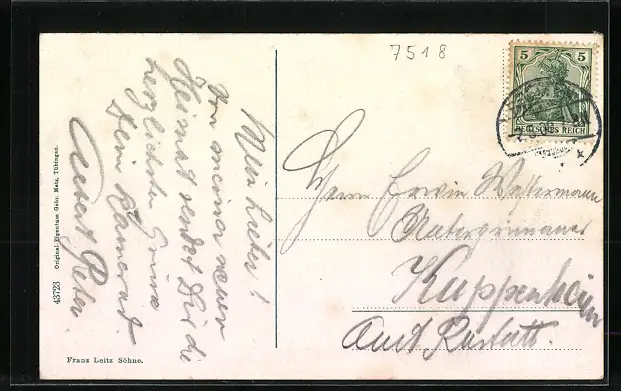 7518
5 5
DEUTSCHES REICH
Mein Lieber!
Von meiner neuen
Heimat sendet Dir die
herzlichsten Grüße
Dein Kamerad
Herrn Erwin Westermann
Kuppenheim
Amt Rastatt.
43723 Original-Eigentum Gebr. Metz, Tübingen.
Franz Leitz Söhne.